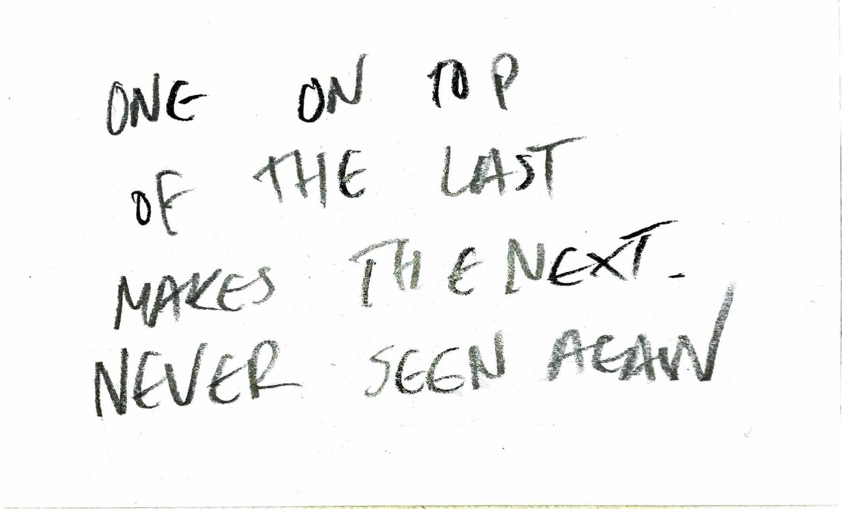 ONE ON TOP
OF THE LAST
MAKES THE NEXT.
NEVER SEEN AGAIN